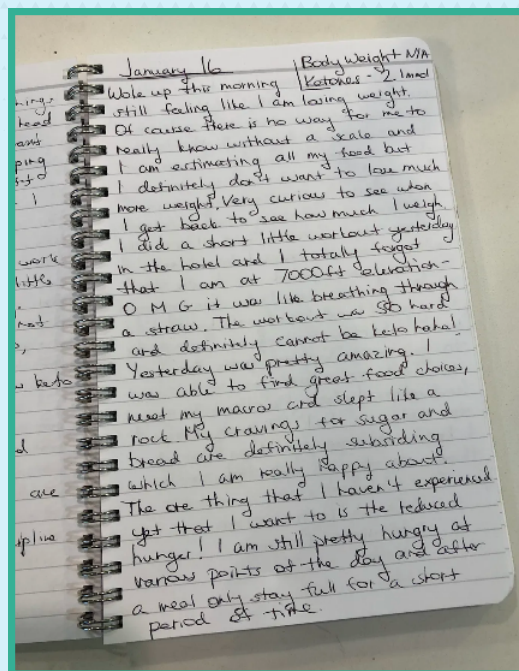 nings
head
ant
ping
I
work
little
not
keto
d
are
ipline
January 16
Body Weight N/A
Ketones - 2.1 mmol
Woke up this morning
still feeling like I am losing weight.
Of course there is no way for me to
really know without a scale and
I am estimating all my food but
I definitely don't want to lose much
more weight. Very curious to see when
I get back to see how much I weigh.
I did a short little workout yesterday
in the hotel and I totally forgot
that I am at 7000ft elevation -
O M G it was like breathing through
a straw. The workout was so hard
and definitely cannot be keto haha!
Yesterday was pretty amazing. I
was able to find great food choices,
meet my macros and slept like a
rock My cravings for sugar and
bread are definitely subsiding
which I am really happy about.
The one thing that I haven't experienced
yet that I want to is the reduced
hunger! I am still pretty hungry at
various points of the day and after
a meal only stay full for a short
period of time.